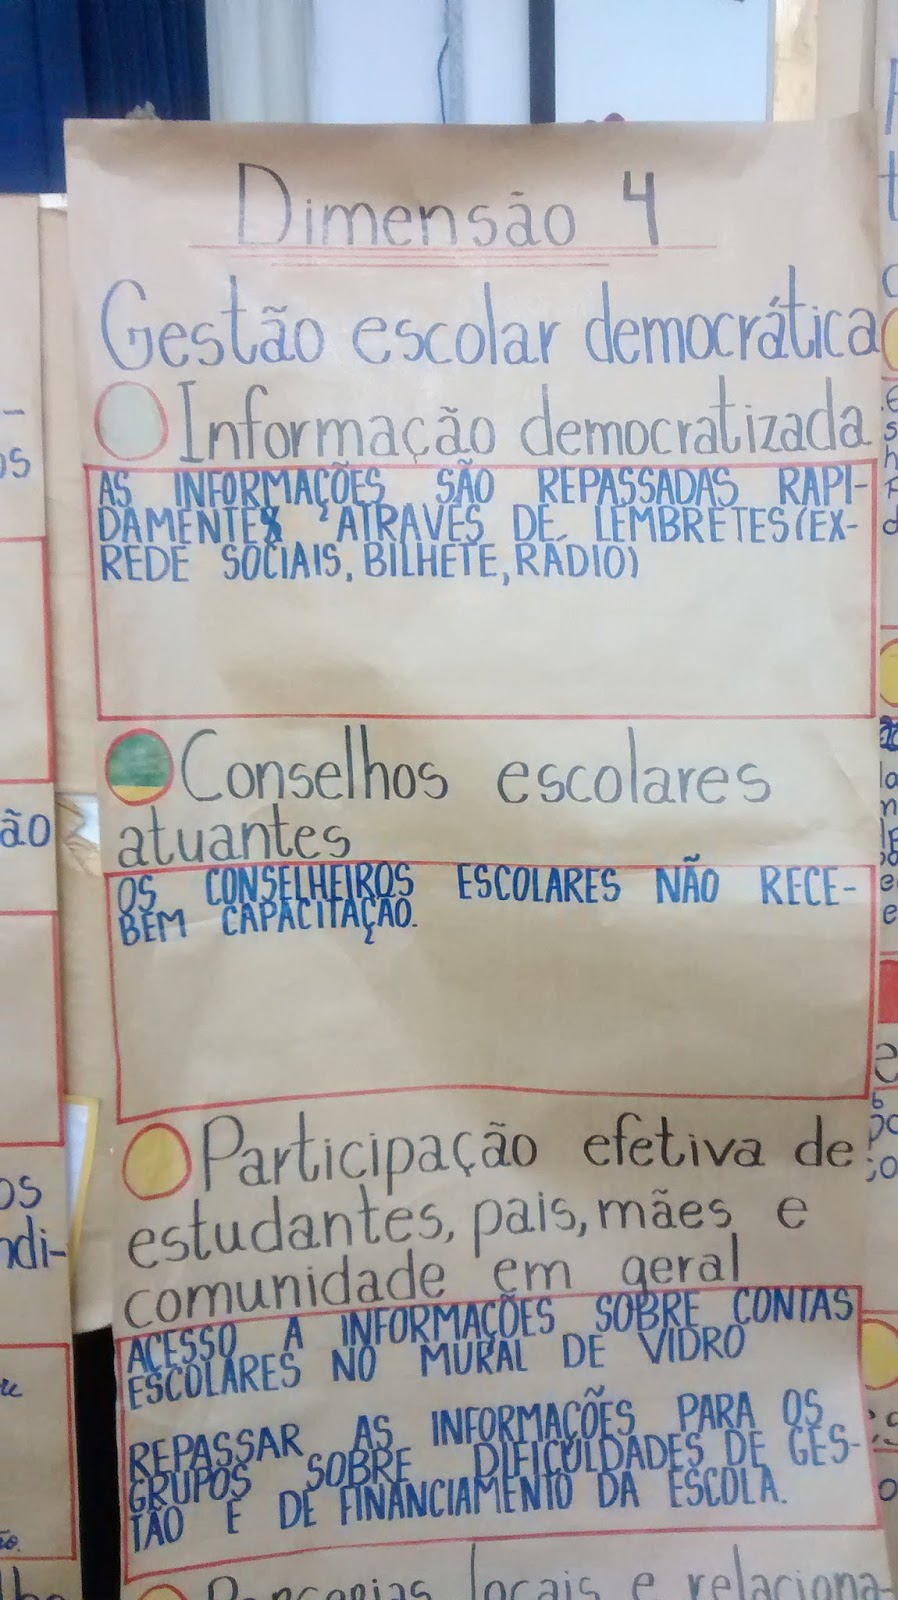 Dimensão 4
Gestão escolar democrática
Informação democratizada
AS INFORMAÇÕES SÃO REPASSADAS RAPI-
DAMENTE ATRAVÉS DE LEMBRETES(EX-
REDE SOCIAIS, BILHETE, RÁDIO)
Conselhos escolares
atuantes
OS CONSELHEIROS ESCOLARES NÃO RECE-
BEM CAPACITAÇÃO.
Participação efetiva de
estudantes, pais, mães e
comunidade em geral
ACESSO A INFORMAÇÕES SOBRE CONTAS
ESCOLARES NO MURAL DE VIDRO
REPASSAR AS INFORMAÇÕES PARA OS
GRUPOS SOBRE DIFICULDADES DE GES-
TÃO E DE FINANCIAMENTO DA ESCOLA.
Parcerias locais e relaciona-